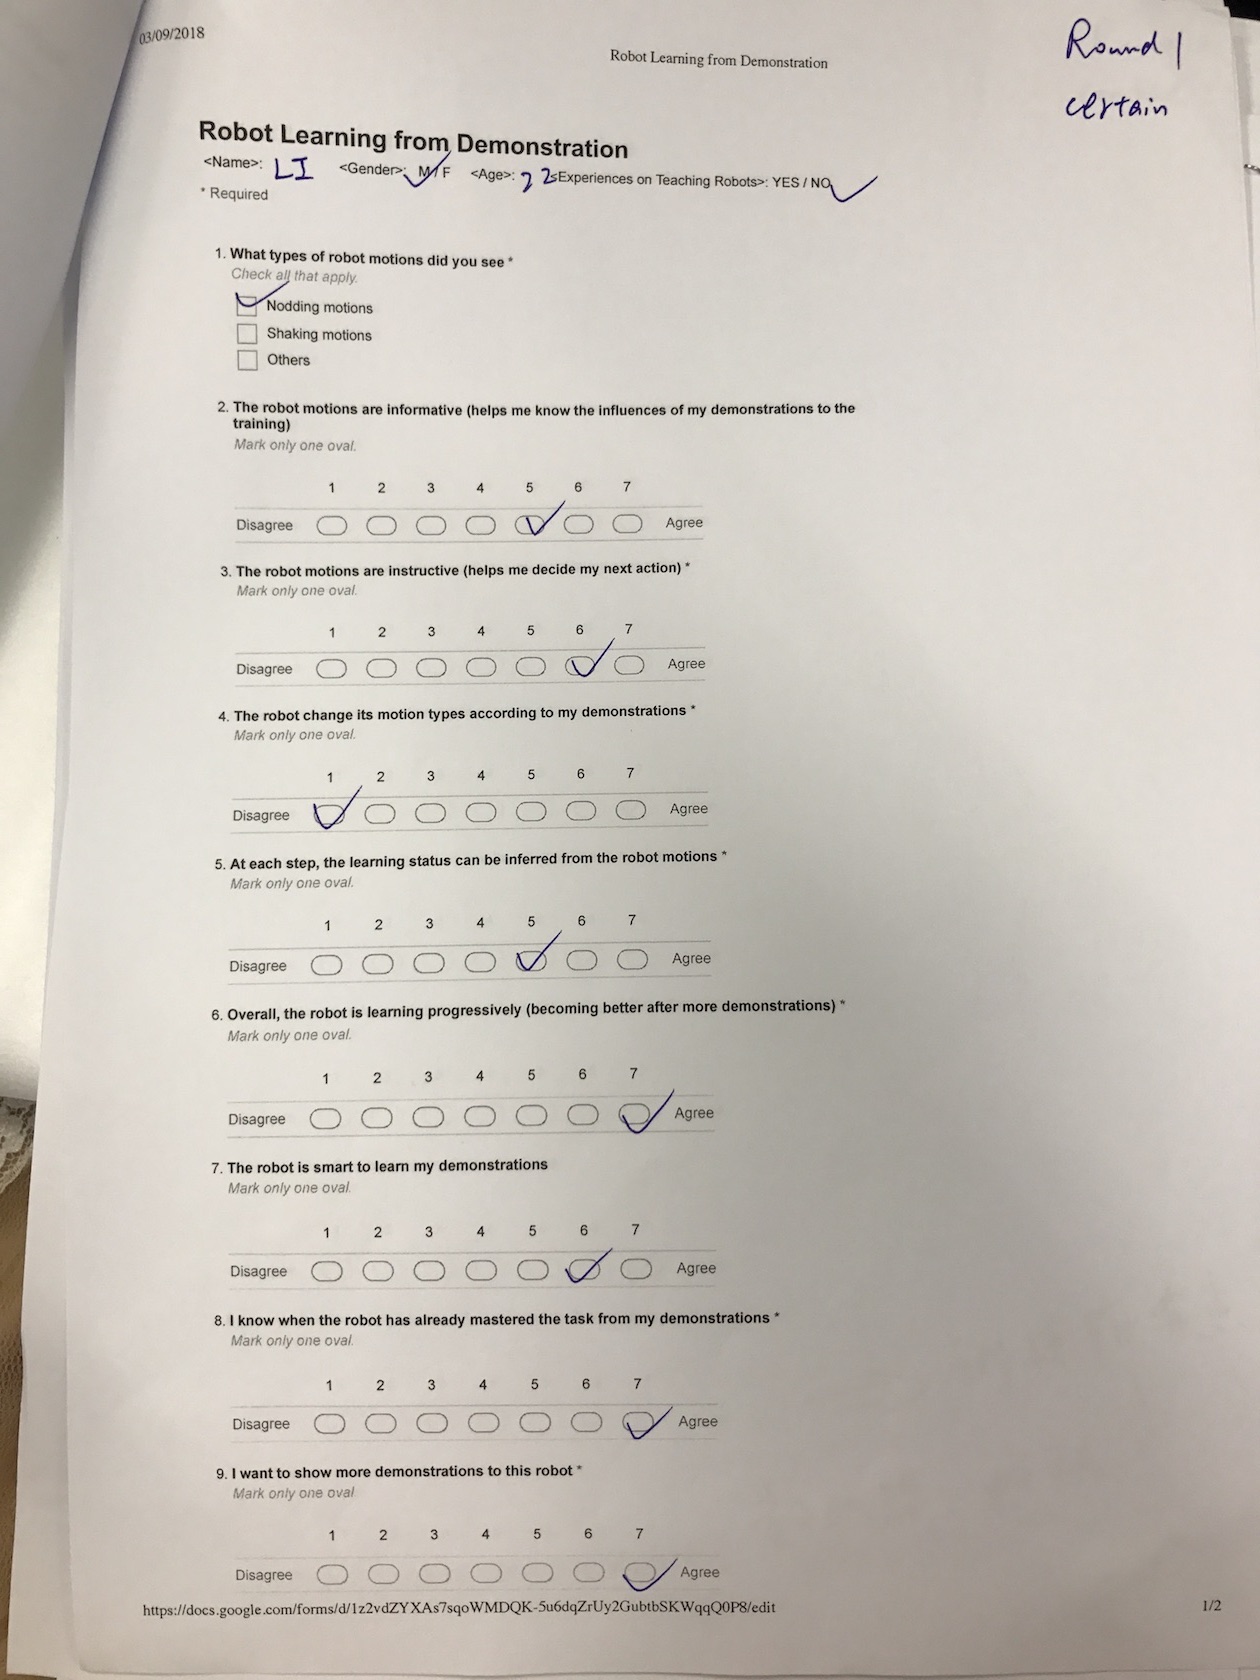 03/09/2018
Robot Learning from Demonstration
Round 1
certain
Robot Learning from Demonstration
<Name>: LI <Gender>: M / F <Age>: 22 <Experiences on Teaching Robots>: YES / NO
* Required
1. What types of robot motions did you see *
Check all that apply.
Nodding motions
Shaking motions
Others
2. The robot motions are informative (helps me know the influences of my demonstrations to the
training)
Mark only one oval.
1 2 3 4 5 6 7
Disagree Agree
3. The robot motions are instructive (helps me decide my next action) *
Mark only one oval.
1 2 3 4 5 6 7
Disagree Agree
4. The robot change its motion types according to my demonstrations *
Mark only one oval.
1 2 3 4 5 6 7
Disagree Agree
5. At each step, the learning status can be inferred from the robot motions *
Mark only one oval.
1 2 3 4 5 6 7
Disagree Agree
6. Overall, the robot is learning progressively (becoming better after more demonstrations) *
Mark only one oval.
1 2 3 4 5 6 7
Disagree Agree
7. The robot is smart to learn my demonstrations
Mark only one oval.
1 2 3 4 5 6 7
Disagree Agree
8. I know when the robot has already mastered the task from my demonstrations *
Mark only one oval.
1 2 3 4 5 6 7
Disagree Agree
9. I want to show more demonstrations to this robot *
Mark only one oval
1 2 3 4 5 6 7
Disagree Agree
https://docs.google.com/forms/d/1z2vdZYXAs7sqoWMDQK-5u6dqZrUy2GubtbSKWqqQ0P8/edit
1/2